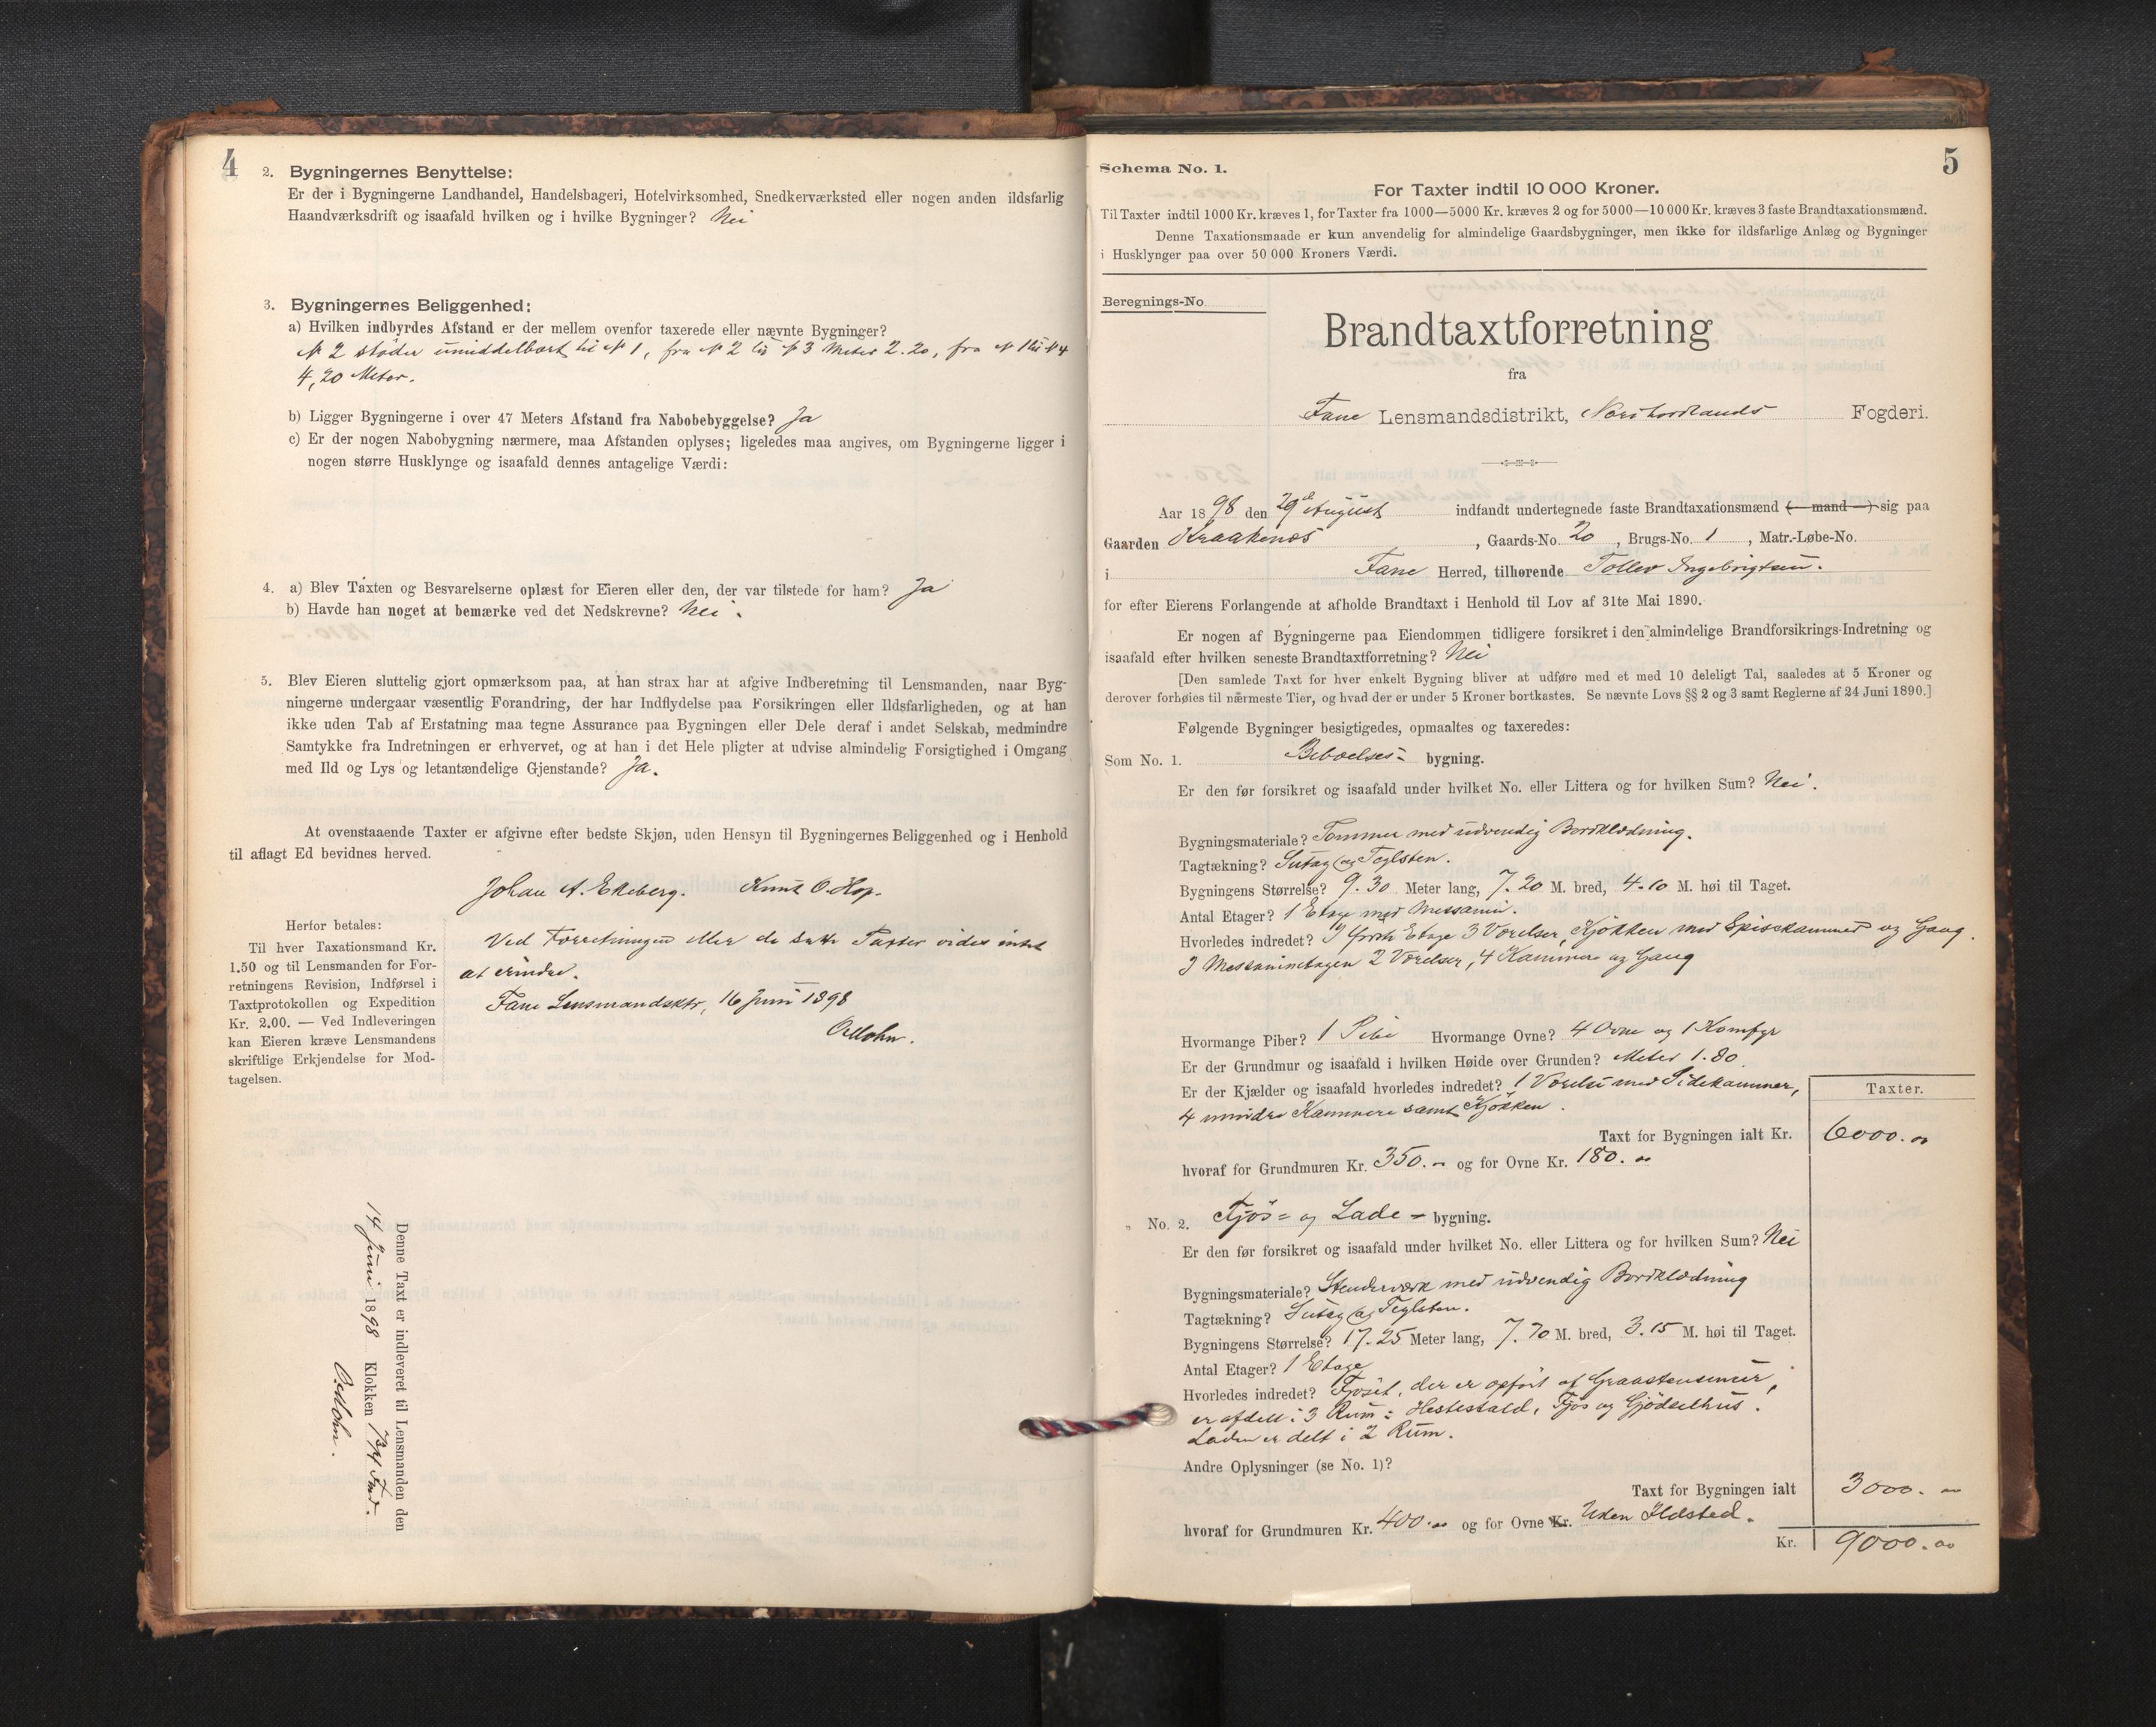 4
2. Bygningernes Benyttelse:
Er der i Bygningerne Landhandel, Handelsbageri, Hotelvirksomhed, Snedkerværksted eller nogen anden ildsfarlig
Haandværksdrift og isaafald hvilken og i hvilke Bygninger? Nei
3. Bygningernes Beliggenhed:
a) Hvilken indbyrdes Afstand er der mellem ovenfor taxerede eller nævnte Bygninger?
N 2 støder umiddelbart til N 1, fra N 2 til N 3 Meter 2.20, fra N 1 til N 4
4,20 Meter.
b) Ligger Bygningerne i over 47 Meters Afstand fra Nabobebyggelse? Ja
c) Er der nogen Nabobygning nærmere, maa Afstanden oplyses; ligeledes maa angives, om Bygningerne ligger i
nogen større Husklynge og isaafald dennes antagelige Værdi:
4. a) Blev Taxten og Besvarelserne oplæst for Eieren eller den, der var tilstede for ham? Ja
b) Havde han noget at bemærke ved det Nedskrevne? Nei.
5. Blev Eieren sluttelig gjort opmærksom paa, at han strax har at afgive Indberetning til Lensmanden, naar Byg-
ningerne undergaar væsentlig Forandring, der har Indflydelse paa Forsikringen eller Ildsfarligheden, og at han
ikke uden Tab af Erstatning maa tegne Assurance paa Bygningen eller Dele deraf i andet Selskab, medmindre
Samtykke fra Indretningen er erhvervet, og at han i det Hele pligter at udvise almindelig Forsigtighed i Omgang
med Ild og Lys og letantændelige Gjenstande? Ja.
At ovenstaaende Taxter er afgivne efter bedste Skjøn, uden Hensyn til Bygningernes Beliggenhed og i Henhold
til aflagt Ed bevidnes herved.
Johan A. Ekeberg. Knut O. Hop.
Herfor betales:
Til hver Taxationsmand Kr.
1.50 og til Lensmanden for For-
retningens Revision, Indførsel i
Taxtprotokollen og Expedition
Kr. 2.00. — Ved Indleveringen
kan Eieren kræve Lensmandens
skriftlige Erkjendelse for Mod-
tagelsen.
Ved Forretningen eller de satte Taxter vides intet
at erindre.
Fane Lensmandsktr, 16 Juni 1898
Denne Taxt er indleveret til Lensmanden den
14 Juni 1898 Klokken
5
Schema No. 1.
For Taxter indtil 10 000 Kroner.
Til Taxter indtil 1000 Kr. kræves 1, for Taxter fra 1000—5000 Kr. kræves 2 og for 5000—10 000 Kr. kræves 3 faste Brandtaxationsmænd.
Denne Taxationsmaade er kun anvendelig for almindelige Gaardsbygninger, men ikke for ildsfarlige Anlæg og Bygninger
i Husklynger paa over 50 000 Kroners Værdi.
Beregnings-No
Brandtaxtforretning
fra
Fane Lensmandsdistrikt, Nordhordlands Fogderi.
Aar 1898 den 29de August indfandt undertegnede faste Brandtaxationsmænd (— mand —) sig paa
Gaarden Kraakenes, Gaards-No. 20, Brugs-No. 1, Matr.-Løbe-No.
i Fane Herred, tilhørende Tollev Ingebrigtsen.
for efter Eierens Forlangende at afholde Brandtaxt i Henhold til Lov af 31te Mai 1890.
Er nogen af Bygningerne paa Eiendommen tidligere forsikret i den almindelige Brandforsikrings-Indretning og
isaafald efter hvilken seneste Brandtaxtforretning? Nei
[Den samlede Taxt for hver enkelt Bygning bliver at udføre med et med 10 deleligt Tal, saaledes at 5 Kroner og
derover forhøies til nærmeste Tier, og hvad der er under 5 Kroner bortkastes. Se nævnte Lovs §§ 2 og 3 samt Reglerne af 24 Juni 1890.]
Følgende Bygninger besigtigedes, opmaaltes og taxeredes:
Som No. 1. Beboelses- bygning.
Er den før forsikret og isaafald under hvilket No. eller Littera og for hvilken Sum? Nei.
Bygningsmateriale? Tømmer med udvendig Bordklædning.
Tagtækning? Sutag og Teglsten.
Bygningens Størrelse? 9.30 Meter lang, 7.20 M. bred, 4.10 M. høi til Taget.
Antal Etager? 1 Etage med Messanin.
Hvorledes indredet? I første Etage 3 Værelser, Kjøkken med Spisekammer og Gang.
I Messaninetagen 2 Værelser, 4 Kammere og Gang
Hvormange Piber? 1 Pibe Hvormange Ovne? 4 Ovne og 1 Komfyr
Er der Grundmur og isaafald i hvilken Høide over Grunden? Meter 1.80
Er der Kjælder og isaafald hvorledes indredet? 1 Værelse med Sidekammer,
4 mindre Kammere samt Kjøkken.
Taxter.
Taxt for Bygningen ialt Kr. 6000.00
hvoraf for Grundmuren Kr. 350.- og for Ovne Kr. 180.00
" No. 2. Fjøs- og Lade- bygning.
Er den før forsikret og isaafald under hvilket No. eller Littera og for hvilken Sum? Nei
Bygningsmateriale? Stenderværk med udvendig Bordklædning
Tagtækning? Sutag og Teglsten.
Bygningens Størrelse? 17.25 Meter lang, 7.70 M. bred, 3.15 M. høi til Taget.
Antal Etager? 1 Etage
Hvorledes indredet? Fjøset, der er opført af Graastensmur,
er afdelt i 3 Rum: Hestestald, Fjøs og Gjødselhus.
Laden er delt i 2 Rum.
Andre Oplysninger (se No. 1)?
Taxt for Bygningen ialt 3000.00
hvoraf for Grundmuren Kr. 400.00 og for Ovne Kr. Uden Ildsted.
Kr. 9000.00